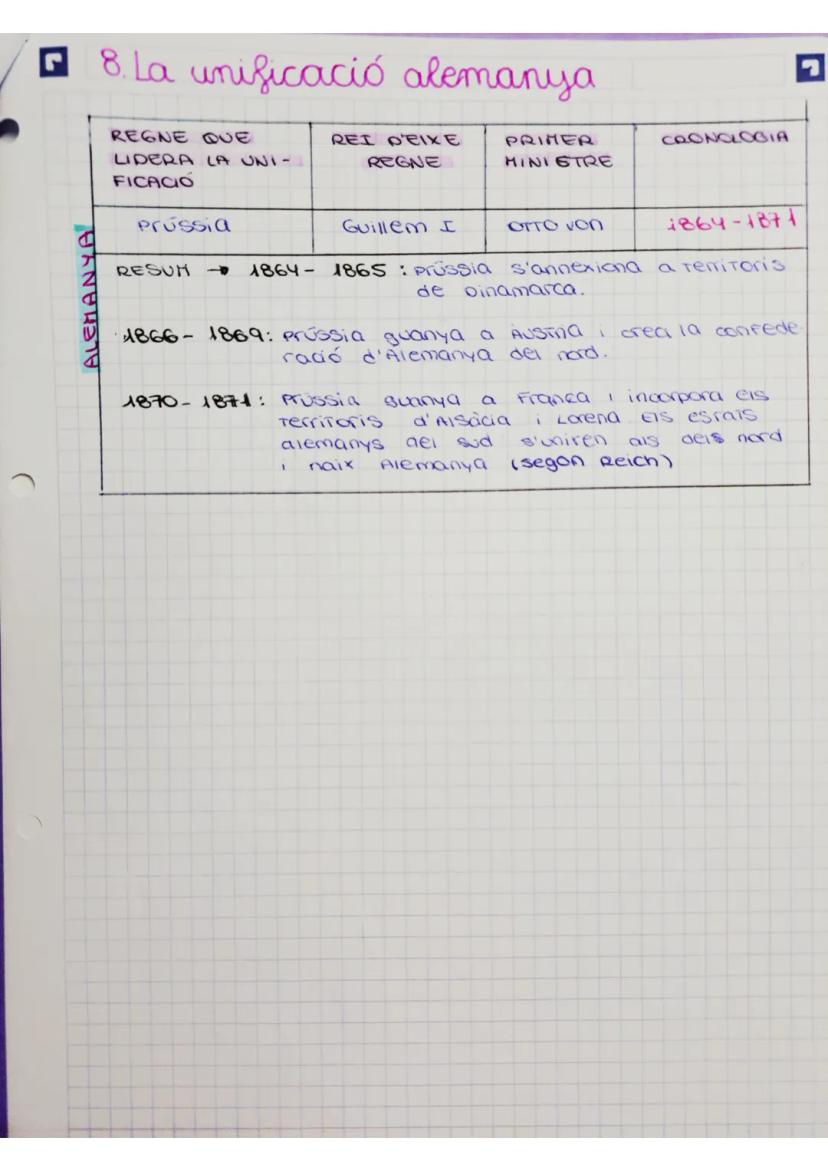 8. La unificació alemanya
REGNE QUE
LIDERA LA UNI-
FICACIÓ
REI D'EIXE
REGNE
PRIMER
MINISTRE
CRONOLOGIA
Prússia
Guillem I
OTTO von
1864-1871
ALEMANYA
RESUM → 1864 - 1865 : Prússia s'annexiona a territoris
de Dinamarca.
1866 - 1869: Prússia guanya a Àustria i crea la confede
ració d'Alemanya del nord.
1870 - 1871: Prússia guanya a França i incorpora els
territoris d'Alsàcia i Lorena Els estats
alemanys del sud s'uniren als dels nord
i naix Alemanya (segon Reich)